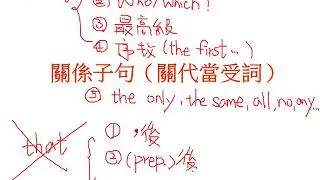 ② Who/Which?
③ 最高級
④ 序數 (the first...)
關係子句（關代當受詞）
⑤ the only, the same, all, no, any...
that
① ，後
② (prep.) 後